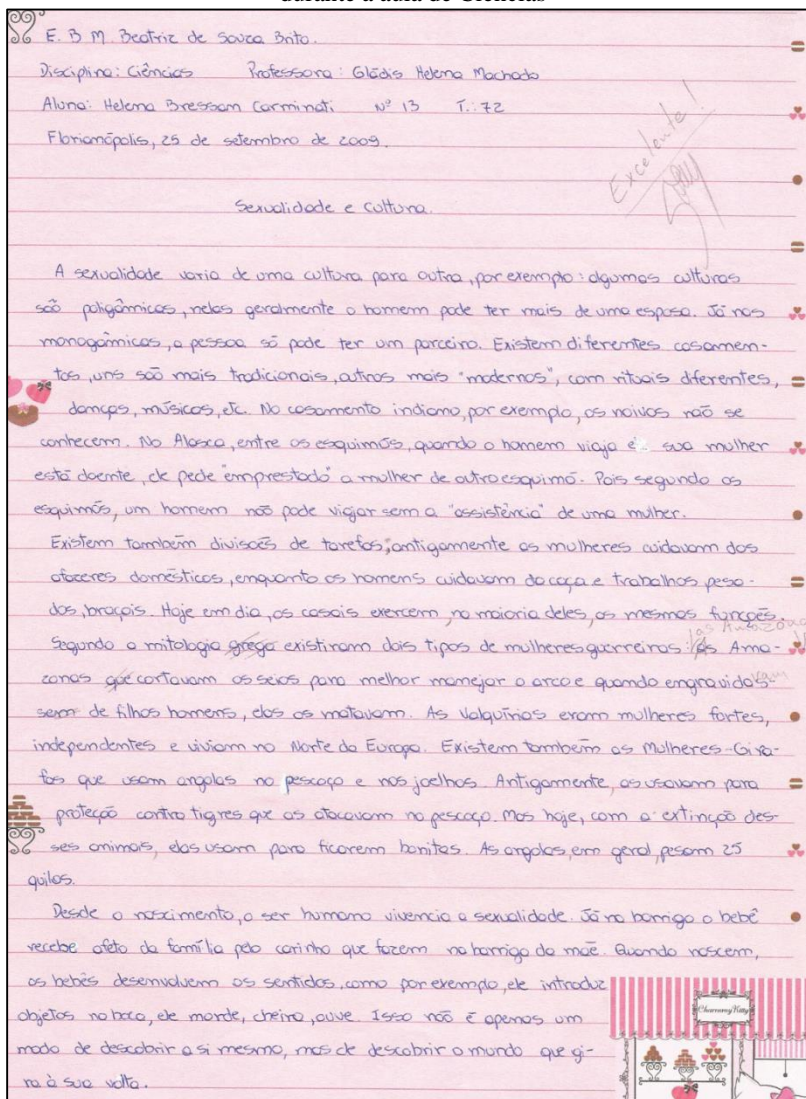 durante a aula de Ciências
E. B. M. Beatriz de Souza Brito.
Disciplina: Ciências Professora: Gládis Helena Machado
Aluna: Helena Bressan Carminati Nº 13 T.: 72
Florianópolis, 25 de setembro de 2009.
Excelente!
Sexualidade e cultura.
A sexualidade varia de uma cultura para outra, por exemplo: algumas culturas
são poligâmicas, nelas geralmente o homem pode ter mais de uma esposa. Já nas
monogâmicas, a pessoa só pode ter um parceiro. Existem diferentes casamen-
tos, uns são mais tradicionais, outros mais "modernos", com rituais diferentes,
danças, músicas, etc. No casamento indiano, por exemplo, os noivos não se
conhecem. No Alasca, entre os esquimós, quando o homem viaja e sua mulher
está doente, ele pede "emprestado" a mulher de outro esquimó. Pois segundo os
esquimós, um homem não pode viajar sem a "assistência" de uma mulher.
Existem também divisões de tarefas; antigamente as mulheres cuidavam dos
afaceres domésticos, enquanto os homens cuidavam da caça e trabalhos pesa-
dos, braçais. Hoje em dia, os casais exercem, na maioria deles, as mesmas funções.
Segundo a mitologia grega existiram dois tipos de mulheres guerreiras: as Ama-
zonas que cortavam os seios para melhor manejar o arco e quando engravidas-
sem de filhos homens, elas os matavam. As Valquírias eram mulheres fortes,
independentes e viviam no Norte da Europa. Existem também as Mulheres-Gira-
fas que usam argolas no pescoço e nos joelhos. Antigamente, as usavam para
proteção contra tigres que as atacavam no pescoço. Mas hoje, com a extinção des-
ses animais, elas usam para ficarem bonitas. As argolas, em geral, pesam 25
quilos.
Desde o nascimento, o ser humano vivencia a sexualidade. Já na barriga o bebê
recebe afeto da família pelo carinho que fazem na barriga da mãe. Quando nascem,
os bebês desenvolvem os sentidos, como por exemplo, ele introduz
objetos na boca, ele morde, cheira, ouve. Isso não é apenas um
modo de descobrir a si mesmo, mas de descobrir o mundo que gi-
ra à sua volta.
Charmmy Kitty